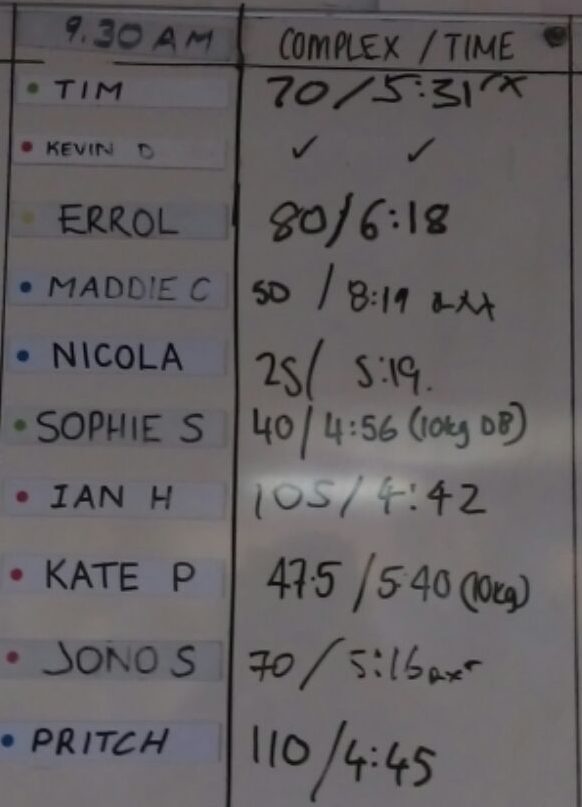 9.30 AM COMPLEX / TIME
TIM 70/5:31 rx
KEVIN D ✓ ✓
ERROL 80/6:18
MADDIE C 50 / 8:19
NICOLA 25/ 5:19.
SOPHIE S 40/4:56 (10kg DB)
IAN H 105/4:42
KATE P 47.5 /5:40 (10kg)
JONO S 70 / 5:16
PRITCH 110/4:45